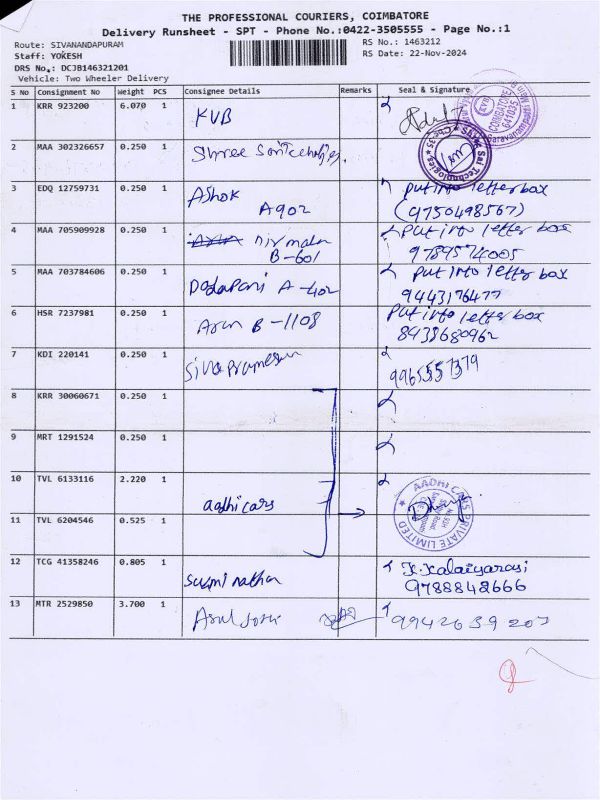 THE PROFESSIONAL COURIERS, COIMBATORE
Delivery Runsheet - SPT - Phone No.:0422-3505555 - Page No.:1
Route: SIVANANDAPURAM
RS No.: 1463212
Staff: YOKESH
RS Date: 22-Nov-2024
DRS No.: DCJB146321201
Vehicle: Two Wheeler Delivery
S No Consignment No Weight PCS Consignee Details Remarks Seal & Signature
1 KRR 923200 6.070 1 KVB
KVB COIMBATORE 641035
2 MAA 302326657 0.250 1 Shree
Sai Technologies
3 EDQ 12759731 0.250 1 Ashok A902 Put into letter box
(9750498567)
4 MAA 705909928 0.250 1 Nirmala B-601 Put into letter box
9789574005
5 MAA 703784606 0.250 1 Dadapani A-402 Put into letter box
9443176477
6 HSR 7237981 0.250 1 Arun B-1108 Put into letter box
8438680962
7 KDI 220141 0.250 1 9965557379
8 KRR 30060671 0.250 1
9 MRT 1291524 0.250 1
10 TVL 6133116 2.220 1 aadhi cars
AADHI CARS PRIVATE LIMITED
11 TVL 6204546 0.525 1
12 TCG 41358246 0.805 1 K. Kalaiyarasi
9788842666
13 MTR 2529850 3.700 1 Arul